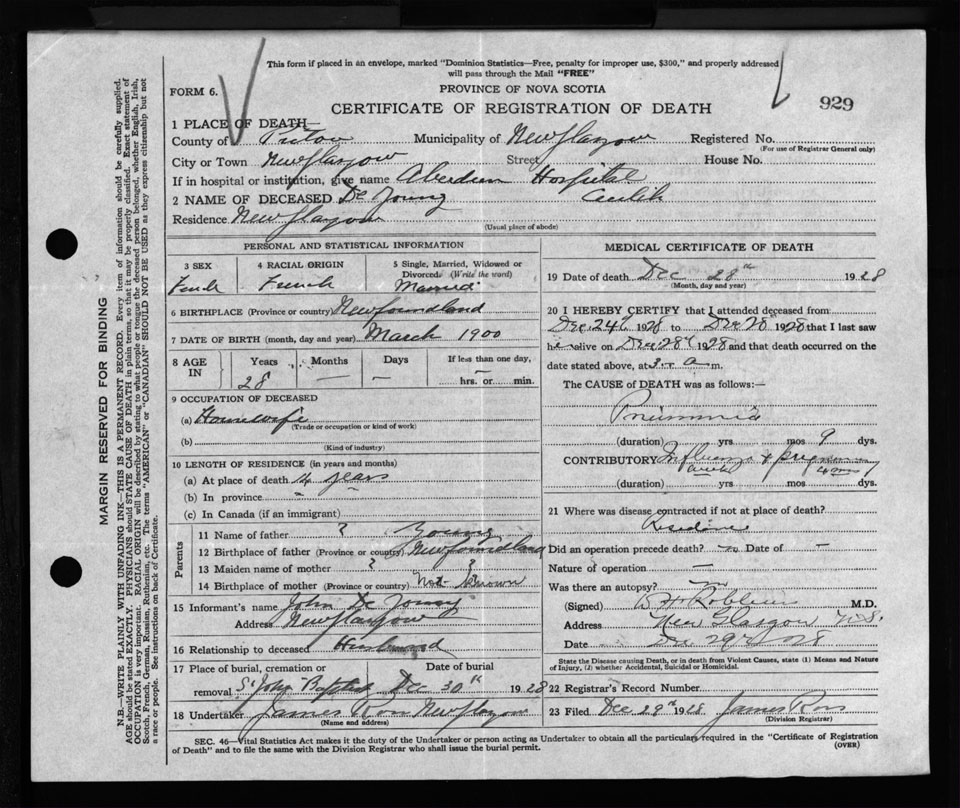 This form if placed in an envelope, marked "Dominion Statistics—Free, penalty for improper use, $300," and properly addressed
will pass through the Mail "FREE"
FORM 6.
PROVINCE OF NOVA SCOTIA
CERTIFICATE OF REGISTRATION OF DEATH
929
1 PLACE OF DEATH—
County of Pictou Municipality of New Glasgow Registered No.
(For use of Registrar General only)
City or Town New Glasgow Street House No.
If in hospital or institution, give name Aberdeen Hospital
2 NAME OF DECEASED De Young Cecilih
Residence New Glasgow
(Usual place of abode)
PERSONAL AND STATISTICAL INFORMATION
3 SEX 4 RACIAL ORIGIN 5 Single, Married, Widowed or Divorced (Write the word)
French Married
6 BIRTHPLACE (Province or country) Newfoundland
7 DATE OF BIRTH (month, day and year) March 1900
8 AGE IN Years Months Days If less than one day,
28 — — hrs. or min.
9 OCCUPATION OF DECEASED
(a) Housewife
(Trade or occupation or kind of work)
(b)
(Kind of industry)
10 LENGTH OF RESIDENCE (in years and months)
(a) At place of death 4 years
(b) In province "
(c) In Canada (if an immigrant)
Parents
11 Name of father ? Young
12 Birthplace of father (Province or country) Newfoundland
13 Maiden name of mother ? ?
14 Birthplace of mother (Province or country) Not Known
15 Informant's name John De Young
Address New Glasgow
16 Relationship to deceased Husband
17 Place of burial, cremation or removal Date of burial
St John Baptist Dec 30th 1928
18 Undertaker James Ross New Glasgow
(Name and address)
MEDICAL CERTIFICATE OF DEATH
19 Date of death Dec 28th 1928
(Month, day and year)
20 I HEREBY CERTIFY that I attended deceased from
Dec 24th 1928 to Dec 28th 1928 that I last saw
h alive on Dec 28th 1928 and that death occurred on the
date stated above, at 3 a m.
The CAUSE of DEATH was as follows:—
Pneumonia
(duration) yrs mos 9 dys.
CONTRIBUTORY Influenza & pregnancy
(duration) yrs. mos. dys.
21 Where was disease contracted if not at place of death?
Residence
Did an operation precede death? no Date of —
Nature of operation —
Was there an autopsy? no
(Signed) M.D.
Address New Glasgow N.S.
Date Dec 29th 28
State the Disease causing Death, or in death from Violent Causes, state (1) Means and Nature
of Injury, (2) whether Accidental, Suicidal or Homicidal.
22 Registrar's Record Number
23 Filed Dec 29th 1928 James Ross
(Division Registrar)
SEC. 46—Vital Statistics Act makes it the duty of the Undertaker or person acting as Undertaker to obtain all the particulars required in the "Certificate of Registration
of Death" and to file the same with the Division Registrar who shall issue the burial permit.
(OVER)
MARGIN RESERVED FOR BINDING
N.B.—WRITE PLAINLY WITH UNFADING INK—THIS IS A PERMANENT RECORD. Every item of information should be carefully supplied.
AGE should be stated EXACTLY. PHYSICIANS should STATE CAUSE OF DEATH in plain terms, so that it may be properly classified. Exact statement of
OCCUPATION is very important. RACIAL ORIGIN will be described by stating to what people or tongue the deceased person belonged, whether English, Irish,
Scotch, French, German, Russian, Ruthenian, etc. The terms "AMERICAN" or "CANADIAN" SHOULD NOT BE USED as they express citizenship but not
a race or people. See instructions on back of Certificate.